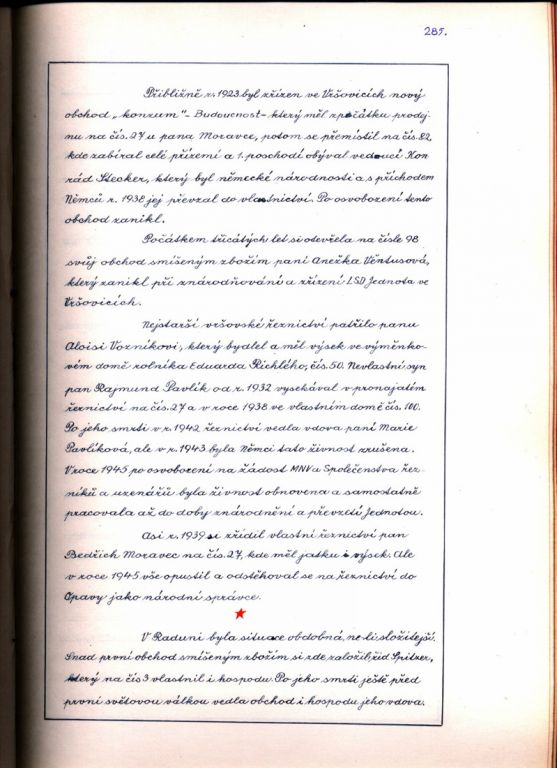 285.
Přibližně r. 1923 byl zřízen ve Vršovicích nový
obchod „konzum"- Budoucnost- který měl zpočátku prodej-
nu na čís. 27 u pana Moravce, potom se přemístil na čís. 82,
kde zabíral celé přízemí a 1. poschodí obýval vedoucí Kon
rád Stecker, který byl německé národnosti a s příchodem
Němců r. 1938 jej převzal do vlastnictví. Po osvobození tento
obchod zanikl.
Počátkem třicátých let si otevřela na čísle 98
svůj obchod smíšeným zbožím paní Anežka Věntusová,
který zanikl při znárodňování a zřízení LSD Jednota ve
Vršovicích.
Nejstarší vršovské řeznictví patřilo panu
Aloisi Vozníkovi, který bydlel a měl výsek ve výměnko-
vém domě rolníka Eduarda Richlého, čís. 50. Nevlastní syn
pan Rajmund Pavlík od r. 1932 vysekával v pronajatém
řeznictví na čís. 27 a v roce 1938 ve vlastním domě čís. 100.
Po jeho smrti v r. 1942 řeznictví vedla vdova paní Marie
Pavlíková, ale v r. 1943 byla Němci tato živnost zrušena.
V roce 1945 po osvobození na žádost MNV a Společenstva řez-
níků a uzenářů byla živnost obnovena a samostatně
pracovala až do doby znárodnění a převzetí Jednotou.
Asi r. 1939 si zřídil vlastní řeznictví pan
Bedřich Moravec na čís. 27, kde měl jatku i výsek. Ale
v roce 1945 vše opustil a odstěhoval se na řeznictví do
Opavy jako národní správce.
V Raduni byla situace obdobná, ne-li složitější.
Snad první obchod smíšeným zbožím si zde založil žid Spitzer,
který na čís 3 vlastnil i hospodu. Po jeho smrti ještě před
první světovou válkou vedla obchod i hospodu jeho vdova.